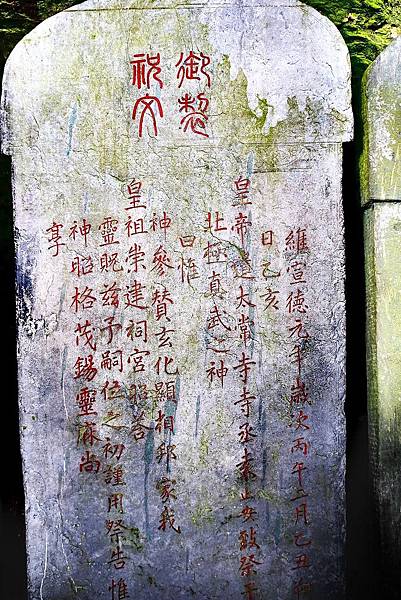 御製
祝文
維宣德元年歲次丙午二月乙丑朔
日乙亥
皇帝遣太常寺寺丞袁正安致祭于
北極真武之神
曰惟
神參贊玄化顯相邦家我
皇祖崇建祠宮昭答
靈貺茲予嗣位之初謹用祭告惟
神昭格茂錫靈庥尚
享